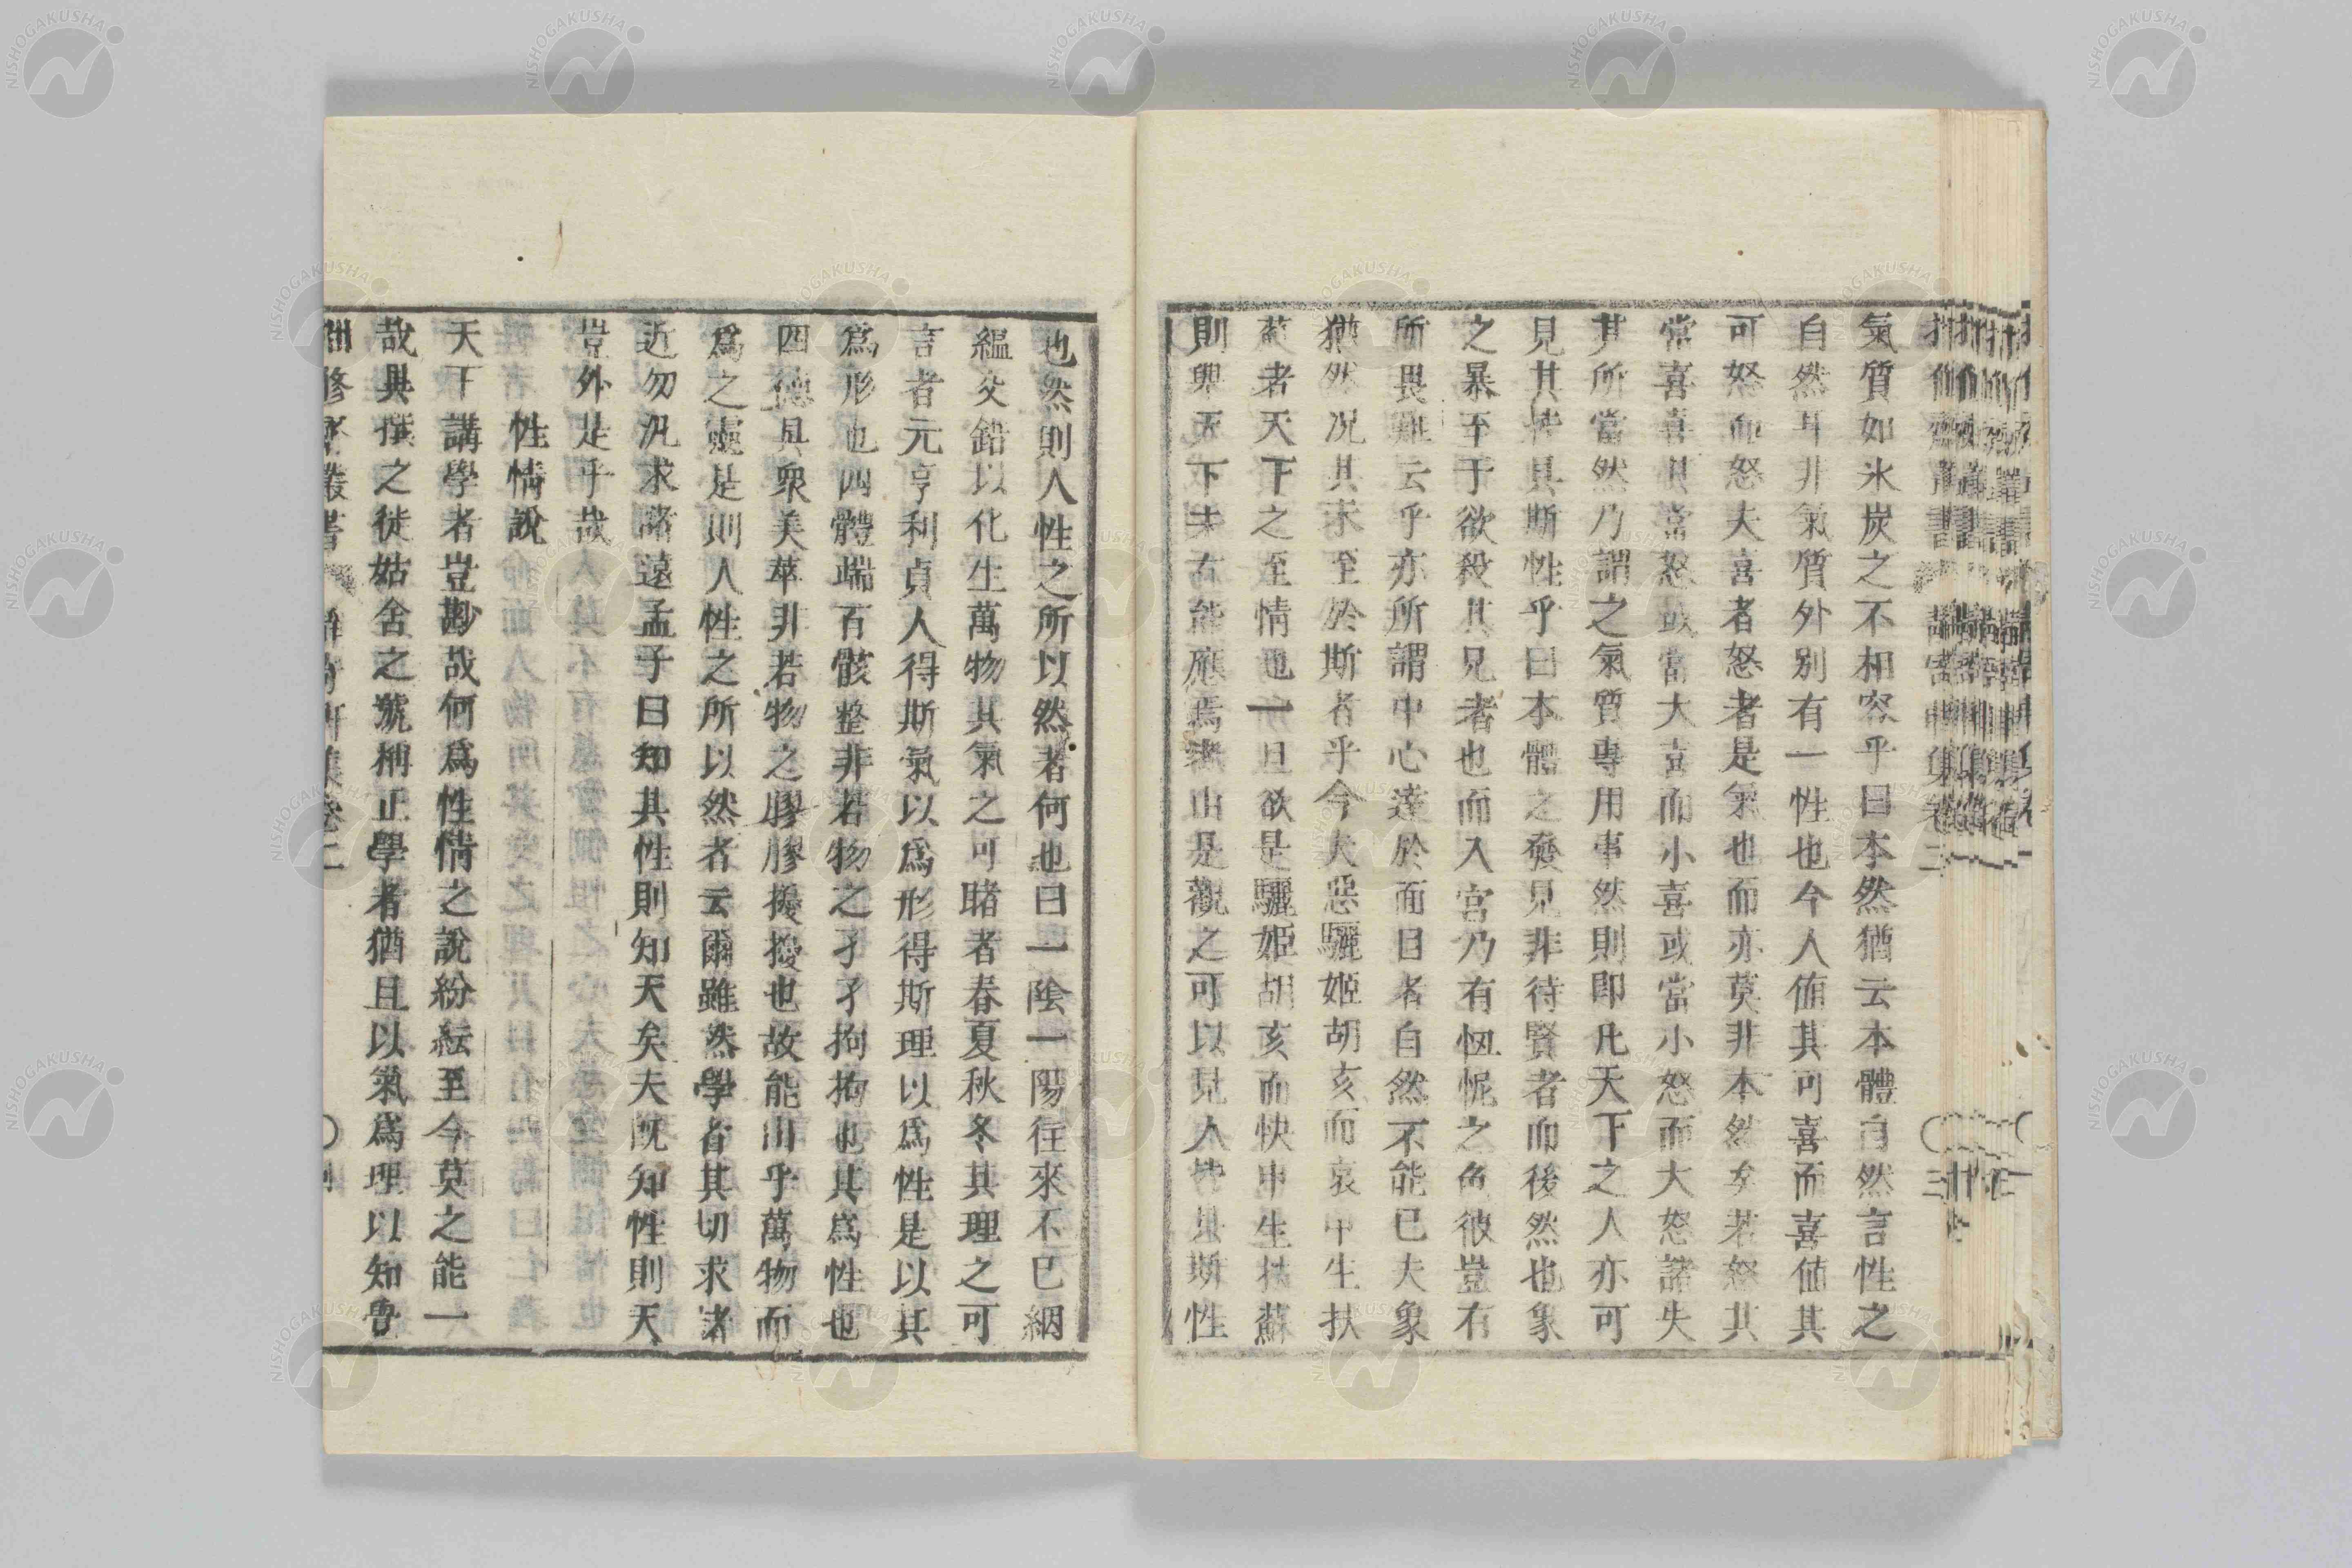 氣質如氷炭之不相容乎曰本然猶云本體自然言性之
自然耳非氣質外別有一性也今人侑其可喜而喜値其
可怒而怒夫喜者怒者是氣也而亦莫非本然矣若怒其
當喜喜其當怒或當大喜而小喜或當小怒而大怒諸失
其所當然乃謂之氣質專用事然則即凡天下之人亦可
見其皆具斯性乎曰本體之發見非待賢者而後然也象
之暴至于欲殺其兄者也而入宮乃有忸怩之色彼豈有
所畏難云乎亦所謂中心達於面目者自然不能已夫象
猶然况其未至於斯者乎今夫惡驪姬胡亥而哀申生扶
蘇者天下之至情也一旦欲是驪姬胡亥而快申生扶蘇
則舉天下未有能應焉者由是觀之可以見人皆具斯性
也然則人性之所以然者何也曰一陰一陽往來不已絪
縕交錯以化生萬物其氣之可睹者春夏秋冬其理之可
言者元亨利貞人得斯氣以爲形得斯理以爲性是以其
爲形也四體端百骸整非若物之孑孑拘拘也其爲性也
四德具衆美萃非若物之膠膠擾擾也故能出乎萬物而
爲之靈是則人性之所以然者云爾雖然學者其切求諸
近勿汎求諸遠孟子曰知其性則知天矣夫既知性則天
豈外是乎哉
性情說
天下講學者豈尠哉何爲性情之說紛紜至今莫之能一
哉異撰之徒姑舍之號稱正學者猶且以氣爲理以知覺